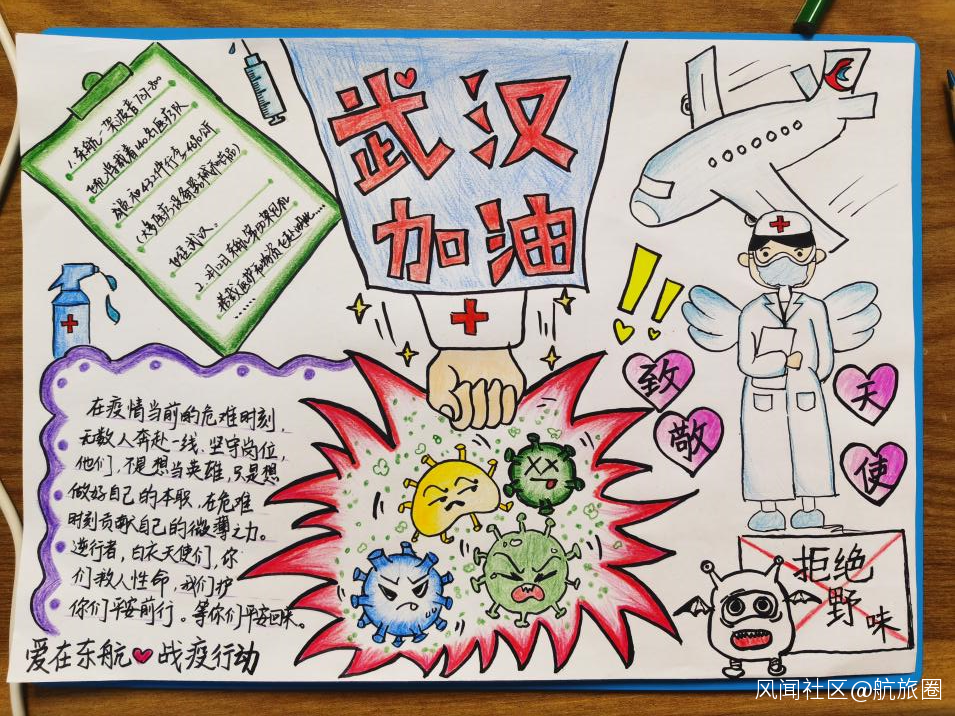 武汉
加油
1.东航一架波音737-800
飞机将载着140名医疗队
成员和432件行李4680公斤
(大量医疗设备器械和药品)
飞往武汉。
2.2月2日东航第四架包机
搭载医护和物资飞赴湖北……
……
在疫情当前的危难时刻,
无数人奔赴一线.坚守岗位,
他们,不是想当英雄,只是想
做好自己的本职,在危难
时刻贡献自己的微薄之力。
逆行者,白衣天使们,你
们救人性命,我们护
你们平安前行。等你们平安回来。
爱在东航 战疫行动
!!
致
敬
天
使
拒绝
野味
风闻社区@航旅圈